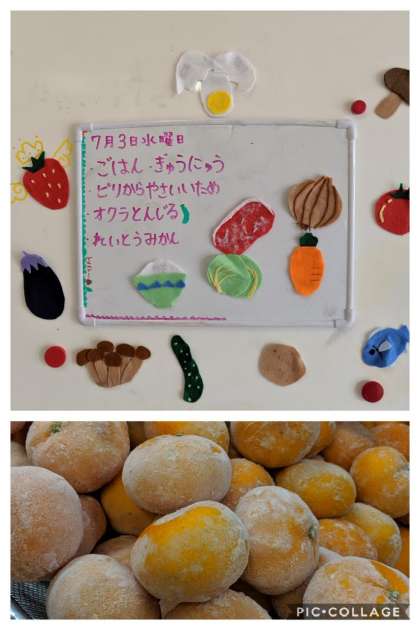 7月3日水曜日
・ごはん・ぎゅうにゅう
・ピリからやさいいため
・オクラとんじる
・れいとうみかん
PIC•COLLAGE